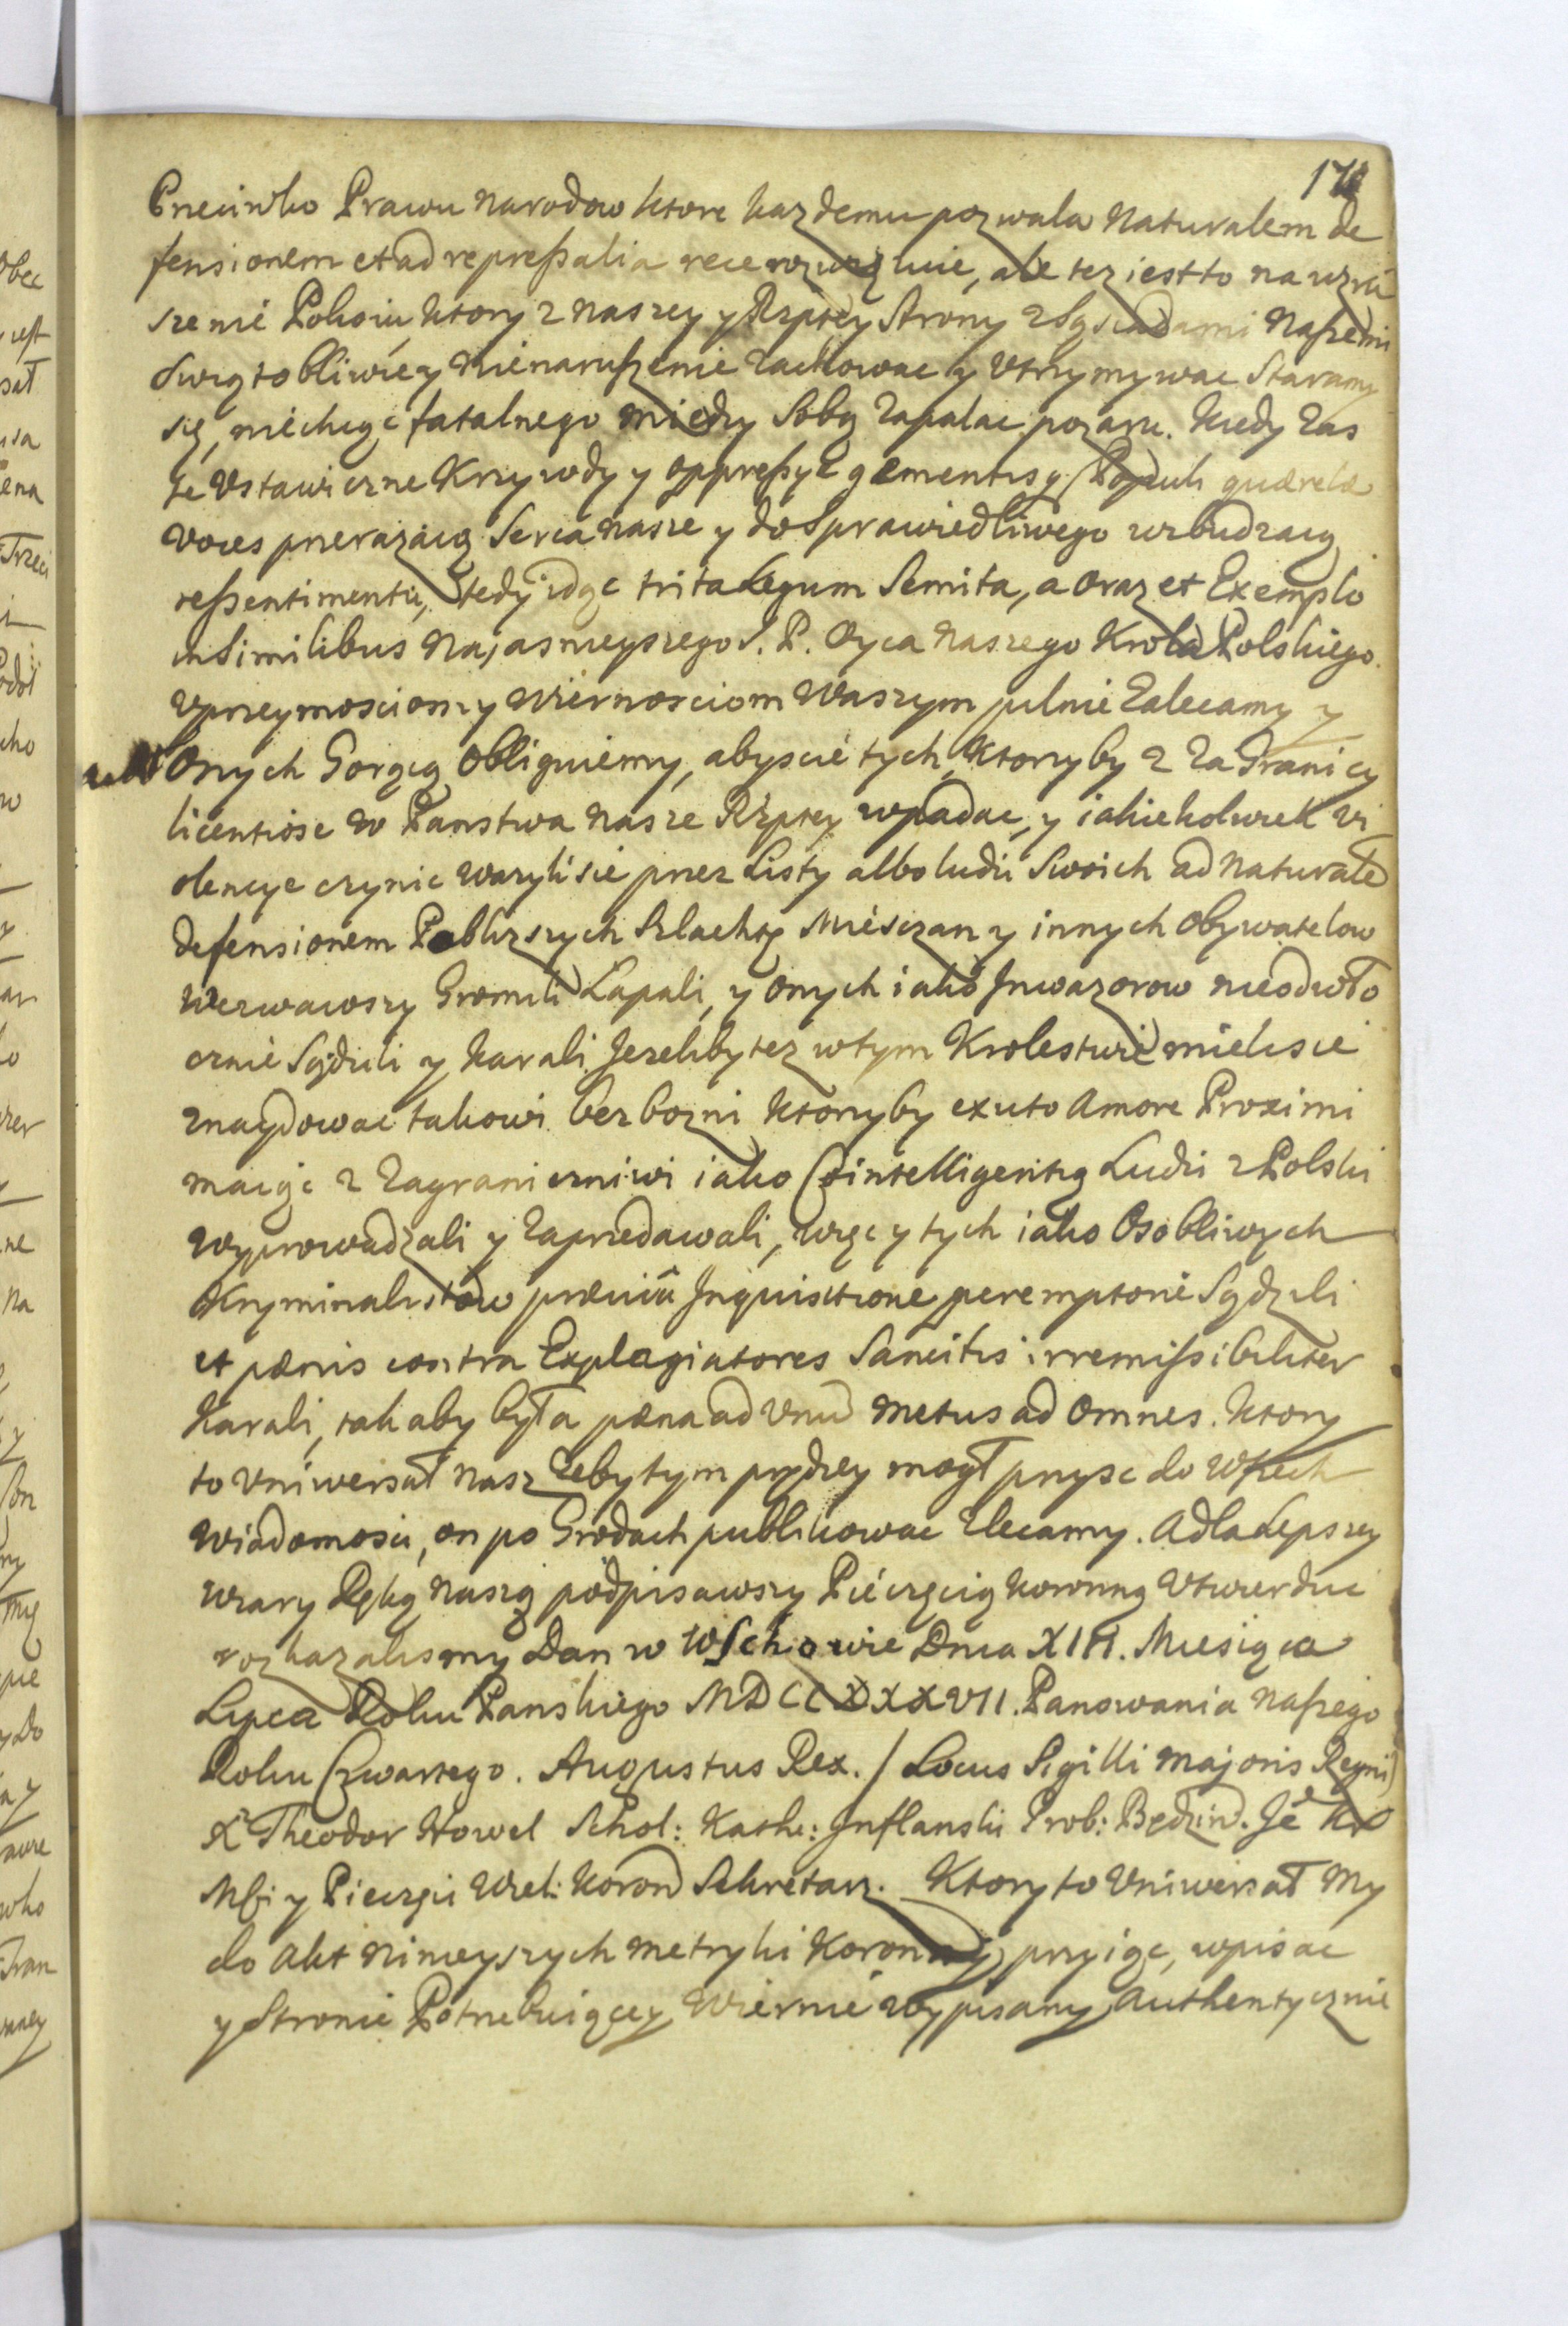 170
Przeciwko Prawu Narodow ktore kazdemu pozwala Naturalem de
fensionem et ad repreßalia rece rozwiązuie, ale tez iest to na wzru
szenie Pokoiu, ktory z naszey y Rzptey Strony z Sąsiadami Naßemi
Swiątobliwie y Nienarußenie zachowac y Utrzymywac Staramy
się, niechcąc fatalnego między Sobą Zapalac pozaru. Kiedy Zas
Te Ustawiczne Krzywdy y oppreßye gementis Populi quærelæ
voces przerazaią Serca nasze y do Sprawiedliwego wzbudzaią
reßentimentu, tedy idąc trita Legum Semita, a oraz et Exemplo
in Similibus Najasnieyszego S. P. Oyca Naszego Krola Polskiego.
Uprzeymosciom y Wiernosciom Waszym pilnie Zalecamy y
Onych Gorącą Obliguiemy, abyscie tych, ktorzyby z Za Granicy
licentiose w Panstwa Nasze Rzptey wpadac, y iakiekolwiek vi
olencye czynic wazyli sie przez Listy albo ludzi Swoich ad Naturale
defensionem Poblizszych Szlachtę Miesczan y innych Obywatelow
Wezwawszy Gromili Łapali, y onych iako Inwazorow nieodwło
cznie Sądzili y Karali. Jezeliby tez w tym Krolestwie mieli sie
znaydowac takowi bezbozni ktorzyby exuto Amore Proximi
maiąc z Zagranicznimi iako Cointelligentią Ludzi z Polski
Wyprowadzali y Zaprzedawali, więc y tych iako Osobliwych
Kryminalistow præviâ Inquisitione peremptorie Sądzili
et pænis contra Explagiatores Sancitis irremißibiliter
Karali, tak aby była pæna ad Unum metus ad Omnes. Ktory
to Uniwersał Nasz Zeby tym prędzey mogł przysc do Wßech
Wiadomosci, on po Grodach publikowac Zlecamy. A dla Lepszey
Wiary Ręką Naszą podpisawszy Pieczęcią Koronną Utwierdzic
rozkazalismy Dan w Wschowie Dnia XIII. Miesiąca
Lipca Roku Panskiego MDCCXXXVII. Panowania Naßego
Roku Czwartego. Augustus Rex. / Locus Sigilli Majoris Regni)
X Theodor Howel Schol: Kath: Inflanski Prob: Będzin. Je Kr
Mści y Pieczęci Wiel: Koron Sekretarz. Ktory to Uniwersał My
do Akt Ninieyszych Metryki Koronney przyiąc, wpisac
y Stronie Potrzebuiącey Wiernie Wypisany Authentycznie